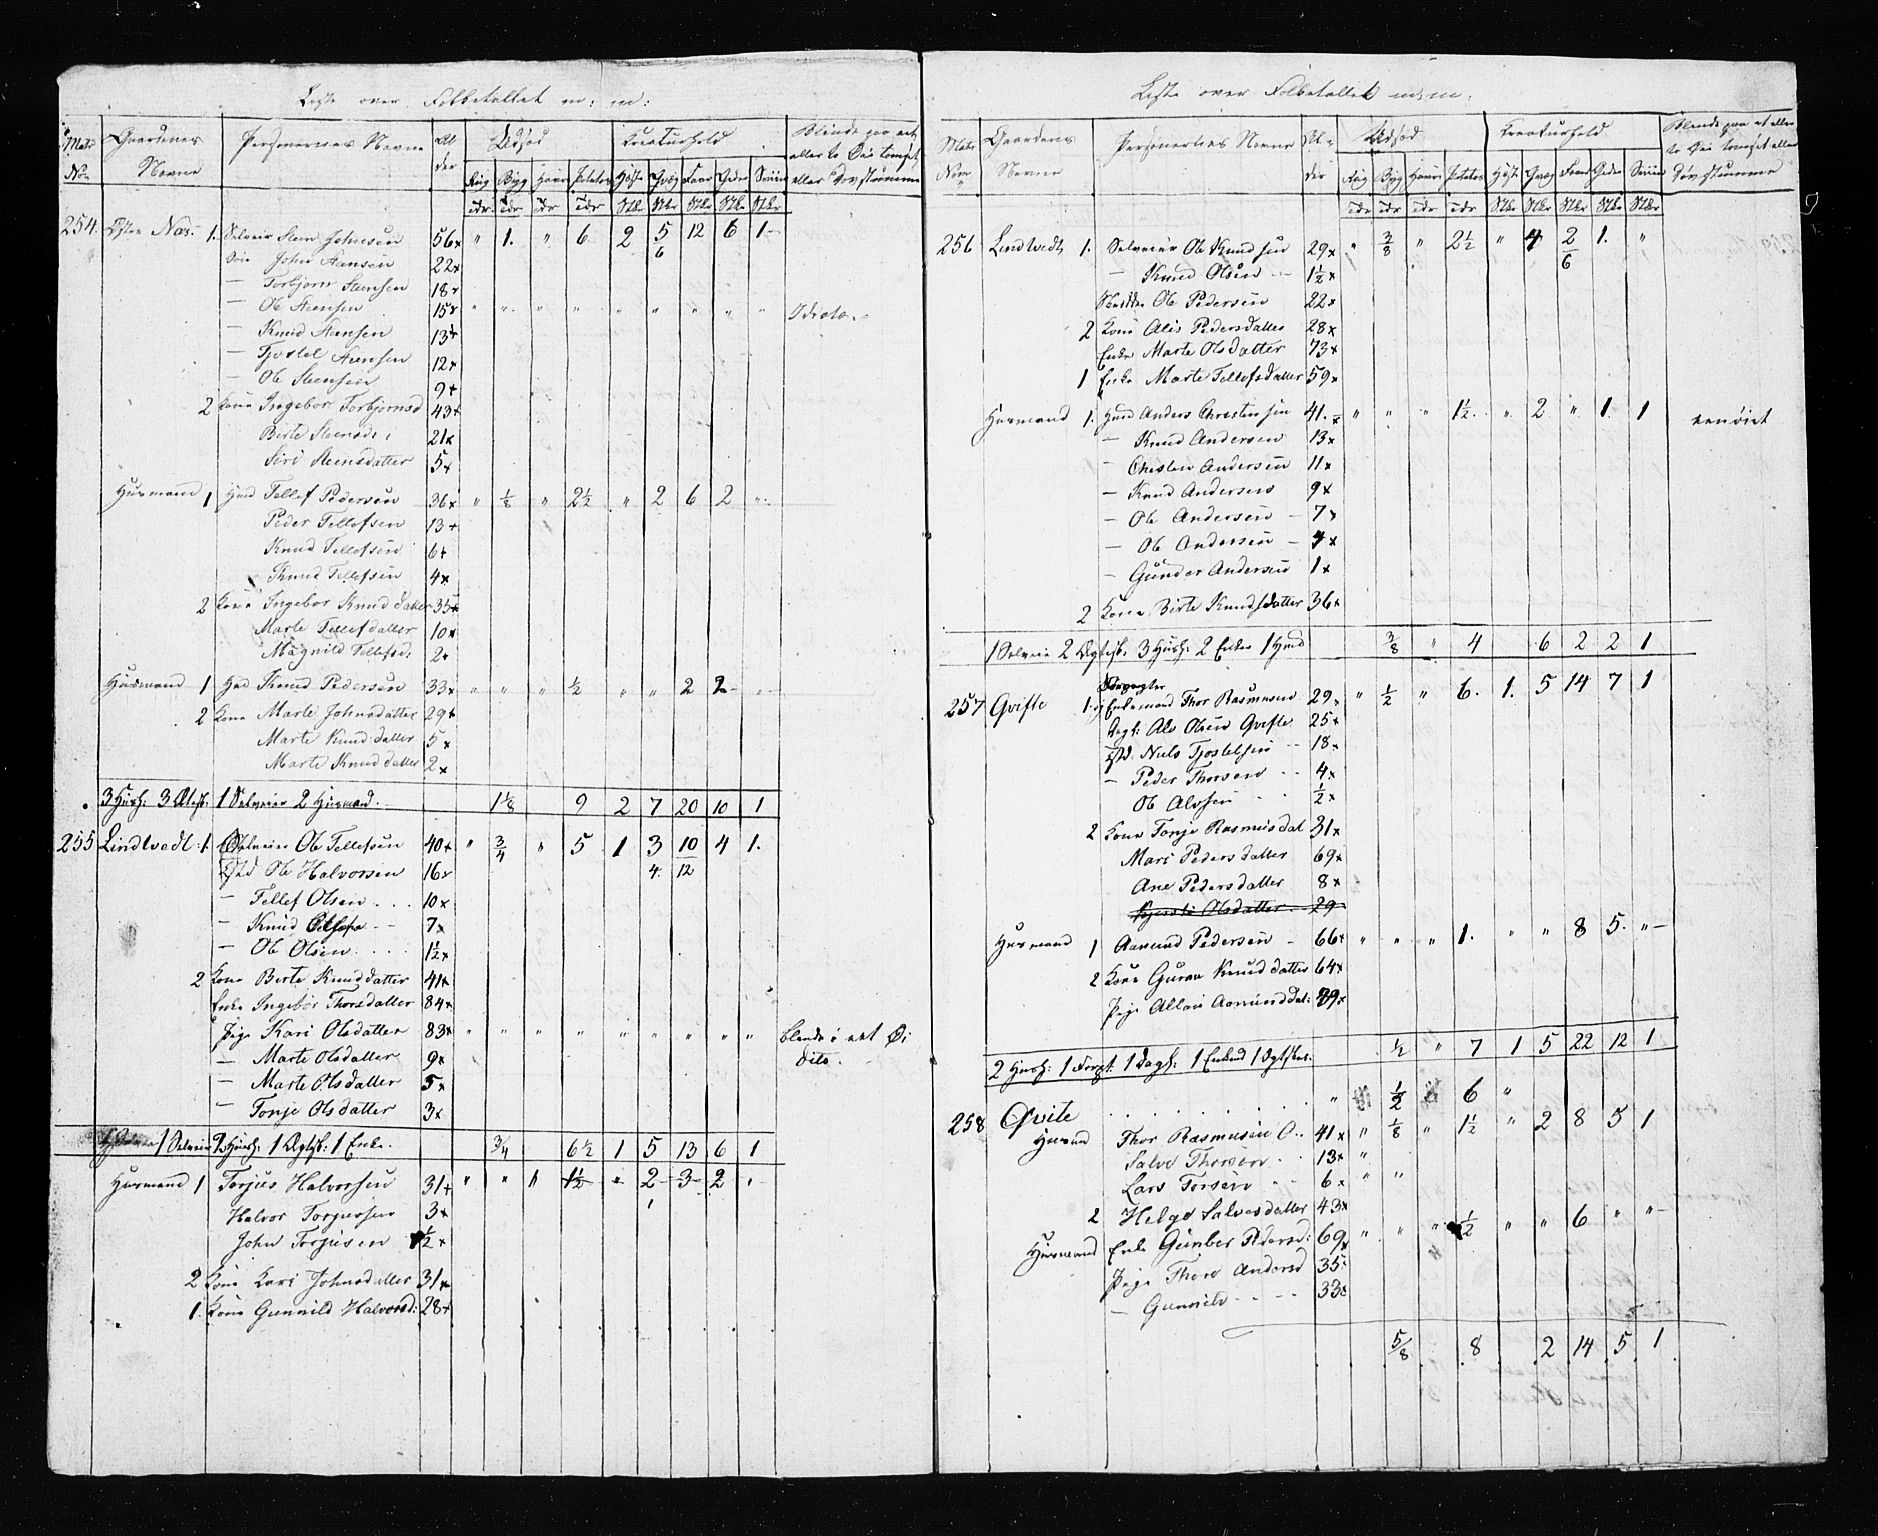 Liste over Folketallet m: m:
Matr No
Gaardenes Navne
Personernes Navne
Alder
Udsæd
Kreaturhold
Blinde paa eet eller to Øine tomset eller Døvstumme
Rug Byg Havre Potetes Heste Qvæg Faar Geder Sviin
Tdr Tdr Tdr Tdr Stkr Stkr Stkr Stkr Stkr
254. Østre Næs. 1. Selveier Steen Johnsen 56x " 1. " 6 2 5/6 12 6 1
Søn John Steensen 22x
— Torbjørn Steensen 18x
— Ole Steensen 15x " " " " " " " " " Idiota.
— Knud Steensen 13x
— Tjostel Steensen 12x
— Ole Steensen 9x
2 Kone Ingebor Torbjørnsd 43x
Birte Steensd: 21x
Siri Steensdatter 5x
Husmand 1 Hmd Tellef Pedersen 36x " 1/8 " 2½ " 2 6 2 "
Peder Tellefsen 13x
Knud Tellefsen 6x
Knud Tellefsen 4x
2 Kone Ingebor Knudsdatter 35x
Marte Tellefdatter 10x
Magnild Tellefsd: 2x
Husmand 1 Hmd Knud Pedersen 33x " " " ½ " " 2 2 "
2 Kone Marte Johnsdatter 29x
Marte Knudsdatter 5x
Marte Knudsdatter 2x
3 Hush: 3 1 Selveier 2 Husmænd. 1 1/8 9 2 7 20 10 1
255 Lindtvedt 1. Selveier Ole Tellefsen 40x " 3/4 " 5 1 3 10 4 1.
Ole Halvorsen 16x 4 12
— Tellef Olsen 10x
— Knud Olsen 7x
— Ole Olsen 1½x
2 Kone Berte Knudsdatter 41x
Enke Ingebor Thorsdatter 84x
Pige Kari Olsdatter 83x " " " " " " " " " blende i eet Øi
— Marte Olsdatter 9x dito.
— Marte Olsdatter 5x
— Tonje Olsdatter 3x
1 Selveier 2 Hush: 1 Dgtsf: 1 Enke. 3/4 6½ 1 5 13 6 1
Husmand 1 Torjus Halvorsen 31x " " " 1½ " 2 3 2 "
Halvor Torjusen 3x 1
John Torjusen ½x
2 Kone Kari Johnsdatter 31x
1. Kone Gunnild Halvorsd: 28x
Liste over Folketallet m: m:
Matr Num
Gaardens Navne
Personernes Navne
Alder
Udsæd
Kreaturhold
Blinde paa et eller to Øie tomset eller Døvstumme
Rug Byg Havre Potetes Heste Qvæg Faar Geder Sviin
Tdr Tdr Tdr Tdr Stkr Stkr Stkr Stkr Stkr
256 Lindtvedt 1. Selveier Ole Knudsen 29x " 3/8 " 2½ " 4 2/6 1. "
— Knud Olsen 1½x
Ole Pedersen 22x
2 Kone Alis Pedersdatter 28x
Enke Marte Olsdatter 73x
1 Enke Marte Tellefsdatter 59x
Husmand 1. Hmd Anders Christensen 41.x " " " 1½. " 2 " 1 1
— Knud Andersen 13x
— Chresten Andersen 11x
— Knud Andersens 9x
— Ole Andersen 7x
— Ole Andersen 4x
— Gunder Andersen 1x
2 Kone Birte Knudsdatter 36x
1 Selveier 2 Dgtsf. 3 Hush: 2 Enker 1 Hmd 3/8 " 4 6 2 2 1
257 Qvifte 1. Forpagter Enkemand Thor Rasmusen 29x " ½ " 6. 1. 5 14 7 1
Dagl: Als Olsen Qvifte 25x
Niels Tjostelsen 18x
— Peder Thorsen 4x
Ole Alvsen ½x
2 Kone Tonje Rasmusdat 31x
Mari Pedersdatter 69x
Ane Pedersdatter 8x
Kjersti Olsdatter 29
Husmand 1 Aamund Pedersen 66x " " " 1. " " 8 5. "
2 Kone Guron Knudsdatter 64x
Pige Aamunddat: 29x
2 Hush: 1 Forpt: 1 Dagl: 1 Enkmd 1 Dgtsker. ½ " 7 1 5 22 12 1
258 Qvite " ½ 6 "
Husmd Thor Rasmusen Q. 41x " 1/8 " 1½ " 2 8 5 1
Salve Thorsen 13x "
Lars Torsen 6x " "
2 Helge Salvesdatter 43x
Husmand Enke Gunber Pedersd: 69x " " " ½ " " 6 " "
Pige Thore Andersd 35x
— Gunnild 33x
5/8 8 2 14 5 1